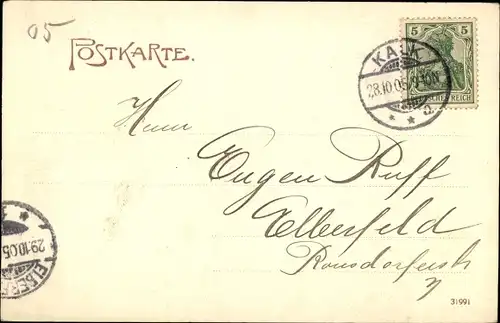 05
POSTKARTE.
5 5
DEUTSCHES REICH
KALK
28.10.05
Herrn
Eugen Ruff
Elberfeld
Ronsdorferstr
29.10.05
ELBERF
31991